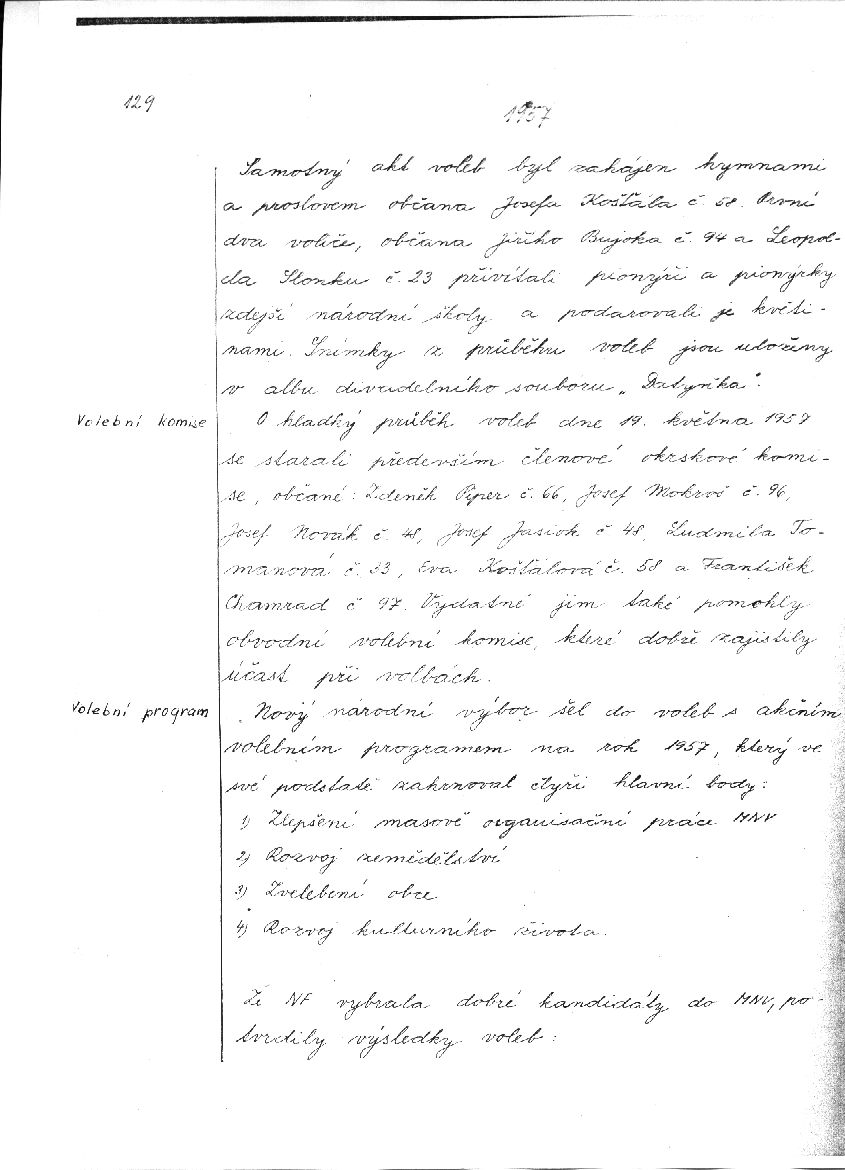 129
1957
Samotný akt voleb byl zahájen hymnami
a proslovem občana Josefa Košťála č. 58. První
dva voliče, občana Jiřího Bujoka č. 94 a Leopol-
da Slonku č. 23 přivítali pionýři a pionýrky
zdejší národní školy a podarovali je květi-
nami. Snímky z průběhu voleb jsou uloženy
v albu divadelního souboru „Datyňka".
Volební komise
O hladký průběh voleb dne 19. května 1957
se starali především členové okrskové komi-
se, občané: Zdeněk Piper č. 66, Josef Mokroš č. 96,
Josef Novák č. 48, Josef Jasiok č. 48, Ludmila To-
manová č. 33, Eva Košťálová č. 58 a František
Chamrad č 97. Vydatně jim také pomohly
obvodní volební komise, které dobře zajistily
účast při volbách.
Volební program
Nový národní výbor šel do voleb s akčním
volebním programem na rok 1957, který ve
své podstatě zahrnoval čtyři hlavní body:
1) Zlepšení masově organisační práce MNV
2) Rozvoj zemědělství
3) Zvelebení obce
4) Rozvoj kulturního života.
Že NF vybrala dobré kandidáty do MNV, po-
tvrdily výsledky voleb: